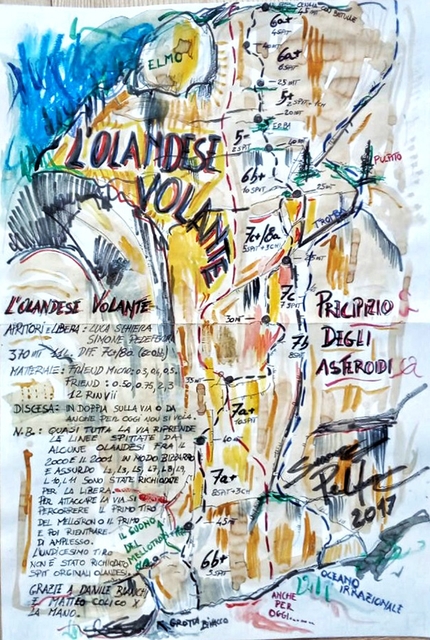 ELMO
L'OLANDESE
VOLANTE
6a+
40 MT
6a+
6 SPIT
25 MT
5+
20 MT
ERBA
5-
2 SPIT
40 MT
6b+
10 SPIT
25 MT
PULPITO
7c+/8a
5 SPIT+3CH
45 MT
7c
30 MT
7b
8 SPIT
35 MT
7a+
40
7a+
8 SPIT+3CH
45 MT
6b+
5 SPIT
PRECIPIZIO
DEGLI
ASTEROIDI
2017
L'OLANDESE VOLANTE
APRITORI E LIBERA: LUCA SCHIERA
SIMONE PEDEFERRI
370 MT DIF 7C+/8a
MATERIALE: FRIEND MICRO: 0.3, 0.4, 0.5
FRIEND: 0.50, 0.75, 2, 3
12 RINVII
DISCESA: IN DOPPIA SULLA VIA O DA
ANCHE PER OGGI NON SI VOLA.
N.B.: QUASI TUTTA LA VIA RIPRENDE
LE LINEE SPITTATE DA
ALCUNE OLANDESI FRA IL
2000 E IL 2001 IN MODO BIZZARRO
E ASSURDO L2, L3, L5, L7, L8, L9,
L10, L11 SONO STATE RICHIODATE
PER LA LIBERA.
PER ATTACCARE LA VIA SI
PERCORRERE IL PRIMO TIRO
DEL MELLOTRON O IL PRIMO
E POI RIENTRARE
DI AMPLESSO.
L'UNDICESIMO TIRO
NON È STATO RICHIODATO
SPIT ORIGINALI OLANDESI.
GRAZIE A DANILE BIANCHI
E MATTEO COLICO X
LA MANO.
IL SUONO
DEL
MELLOTRON
GROTTA BIVACCO
ANCHE
PER
OGGI......
OCEANO
IRRAZIONALE